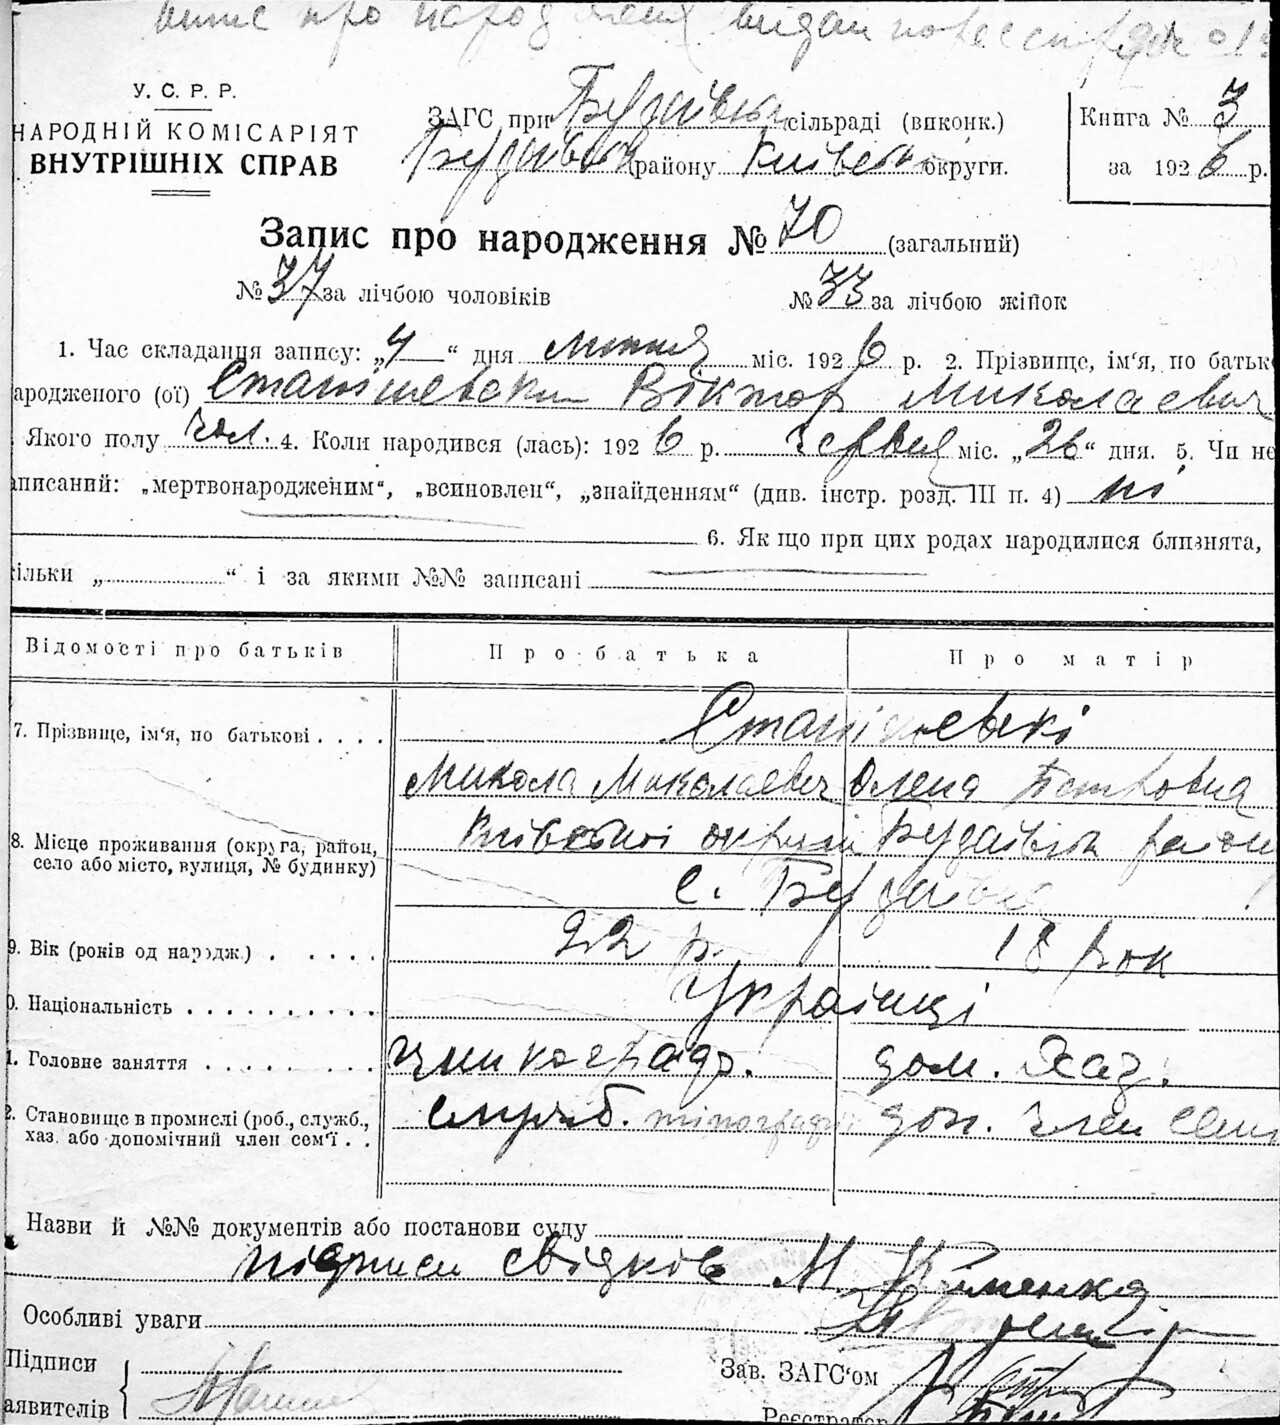 У. С. Р. Р.
НАРОДНІЙ КОМІСАРІЯТ
ВНУТРІШНІХ СПРАВ
ЗАГС при Будаївка сільраді (виконк.)
Будаївськ району Київськ округи.
Книга № 3
за 1926 р.
Запис про народження № 70 (загальний)
№ 37 за лічбою чоловіків
№ 33 за лічбою жінок
1. Час складання запису: „4“ дня липня міс. 1926 р. 2. Прізвище, ім'я, по батьк
ародженого (ої) Станішевськи Віктор Миколаевич
Якого полу чол. 4. Коли народився (лась): 1926 р. червня міс. „26“ дня. 5. Чи не
аписаний: „мертвонародженим“, „всиновлен“, „знайденням“ (див. інстр. розд. III п. 4) ні
6. Як що при цих родах народилися близнята,
ільки „ “ і за якими №№ записані
Відомості про батьків
Про батька
Про матір
7. Прізвище, ім'я, по батькові . . . .
Станішевські
Микола Миколаевич Олена Петровна
8. Місце проживання (округа, район,
село або місто, вулиця, № будинку)
Київської округи Будаївськ район
с. Будаївка
9. Вік (років од народж.) . . . . .
22 р.
18 рок
0. Національність . . . . . . . . . .
Українці
1. Головне заняття . . . . . . . . .
цинкограф.
дом. хаз.
2. Становище в промислі (роб., служб.,
хаз. або допомічний член сем'ї . .
служб. типографії
доп. член семї
Назви й №№ документів або постанови суду
підписи свідків М.
Особливі уваги
Підписи
аявителів
Зав. ЗАГС'ом
Реєстратор